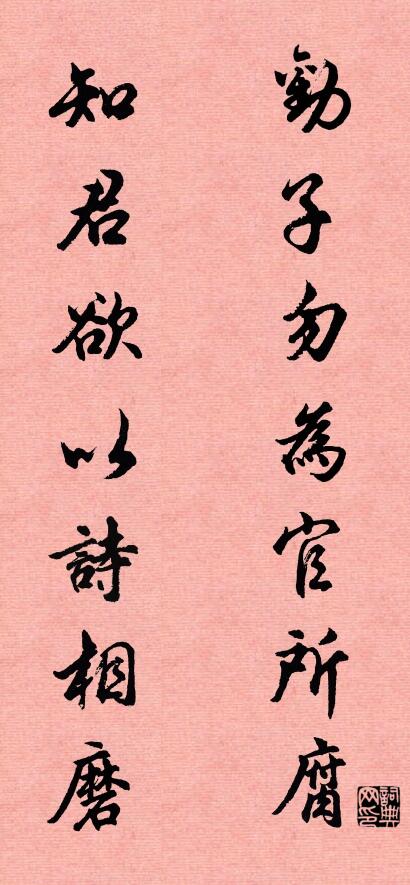 勸子勿為官所腐
知君欲以詩相磨
詞典网印